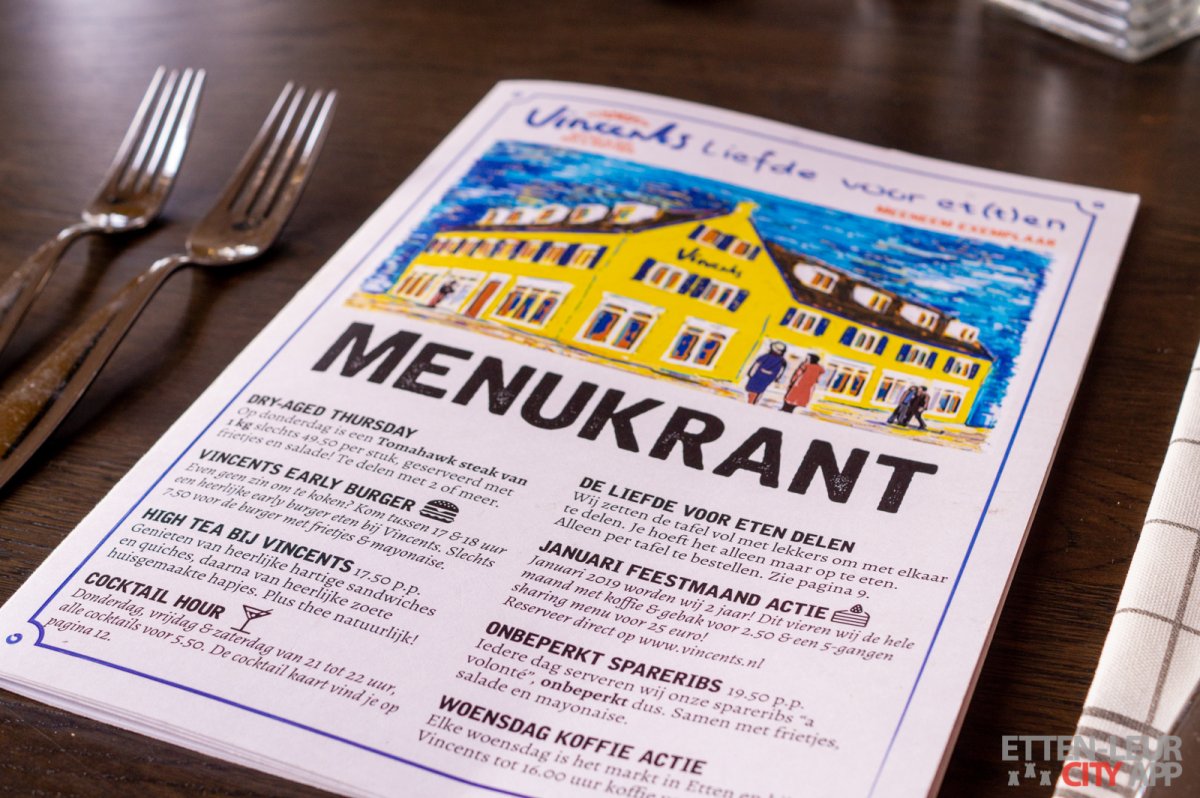 Vincents Liefde voor et(t)en
MEENEEM EXEMPLAAR
Vincents
MENUKRANT
DRY-AGED THURSDAY
Op donderdag is een Tomahawk steak van
1 kg slechts 49.50 per stuk, geserveerd met
frietjes en salade! Te delen met 2 of meer.
VINCENTS EARLY BURGER
Even geen zin om te koken? Kom tussen 17 & 18 uur
een heerlijke early burger eten bij Vincents. Slechts
7.50 voor de burger met frietjes & mayonaise.
HIGH TEA BIJ VINCENTS 17.50 p.p.
Genieten van heerlijke hartige sandwiches
en quiches, daarna van heerlijke zoete
huisgemaakte hapjes. Plus thee natuurlijk!
COCKTAIL HOUR
Donderdag, vrijdag & zaterdag van 21 tot 22 uur,
alle cocktails voor 5.50. De cocktail kaart vind je op
pagina 12.
DE LIEFDE VOOR ETEN DELEN
Wij zetten de tafel vol met lekkers om met elkaar
te delen. Je hoeft het alleen maar op te eten.
Alleen per tafel te bestellen. Zie pagina 9.
JANUARI FEESTMAAND ACTIE
Januari 2019 worden wij 2 jaar! Dit vieren wij de hele
maand met koffie & gebak voor 2.50 & een 5-gangen
sharing menu voor 25 euro!
Reserveer direct op www.vincents.nl
ONBEPERKT SPARERIBS 19.50 p.p.
Iedere dag serveren wij onze spareribs "a
volonté", onbeperkt dus. Samen met frietjes,
salade en mayonaise.
WOENSDAG KOFFIE ACTIE
Elke woensdag is het markt in Etten en
Vincents tot 16.00 uur koffie
ETTEN-LEUR
CITY APP